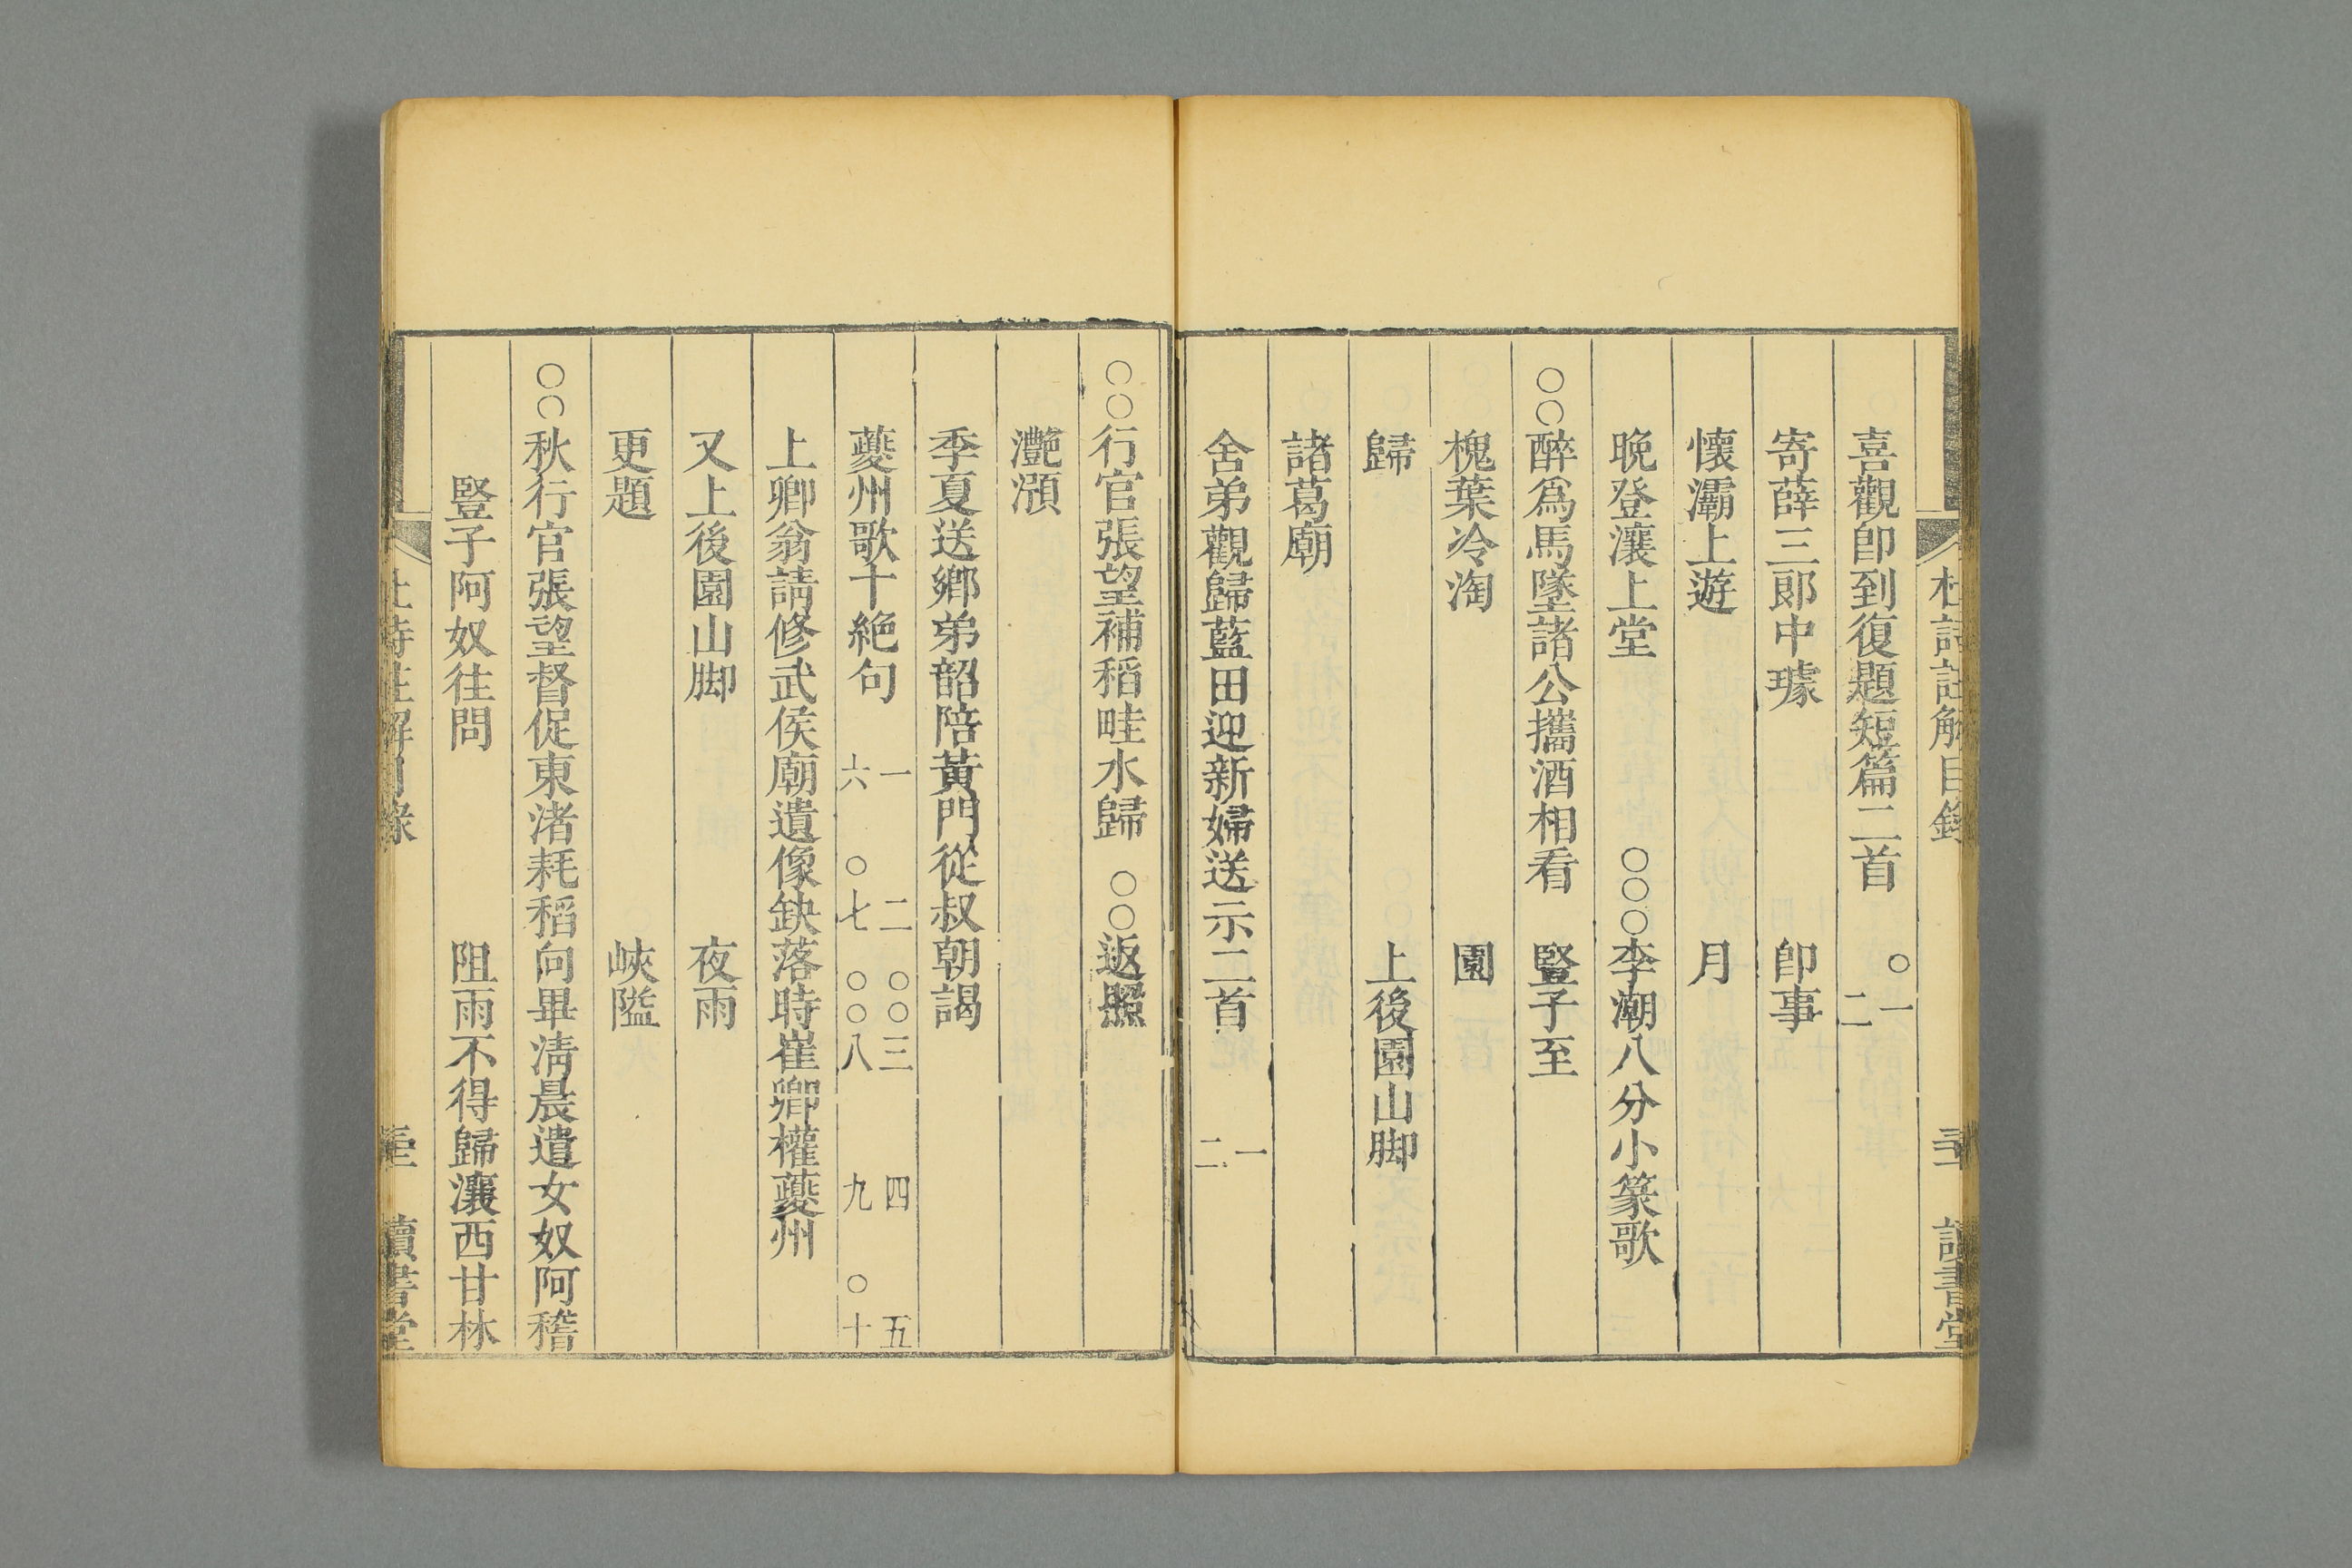 杜詩註解目錄 三 讀書堂
喜觀即到復題短篇二首 ○一 二
寄薛三郎中璩 即事
懷灞上遊 月
晚登瀼上堂 ○○○李潮八分小篆歌
○○醉爲馬墜諸公攜酒相看 豎子至
槐葉冷淘 園
歸 上後園山脚
諸葛廟
舍弟觀歸藍田迎新婦送示二首 一 二
○○行官張望補稻畦水歸 ○○返照
灔澦
季夏送鄉弟韶陪黃門從叔朝謁
夔州歌十絕句 一 二 ○○三 四 五 六 ○七 ○○八 九 ○十
上卿翁請修武侯廟遺像缺落時崔卿權夔州
又上後園山脚 夜雨
更題 峽隘
○○秋行官張望督促東渚耗稻向畢淸晨遣女奴阿稽
豎子阿奴往問 阻雨不得歸瀼西甘林
杜詩註解目錄 讀書堂